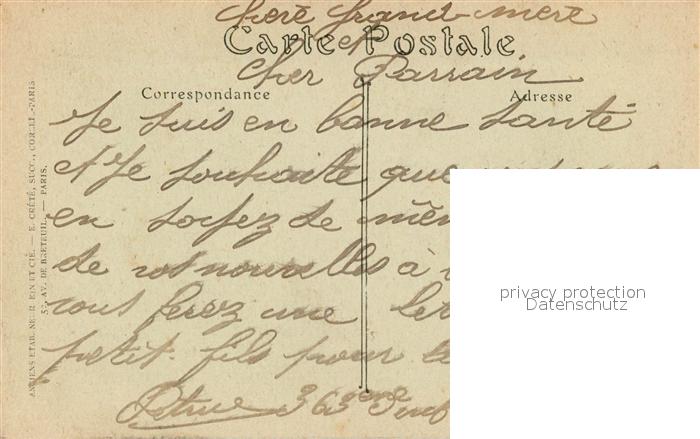 Chere Grand-mere
et
Carte Postale
Cher Parrain
Correspondance
Adresse
Je suis en bonne santé
et Je souhaite que
en soyez de mêm
de vos nouvelles à
vous ferez une let
petit fils pour
363eme Inf
ANCIENS ETAB. NEURDEIN ET CIE. — E. CRÉTÉ, SUCC., CORBEIL-PARIS
52, AV. DE BRETEUIL. — PARIS.
privacy protection
Datenschutz